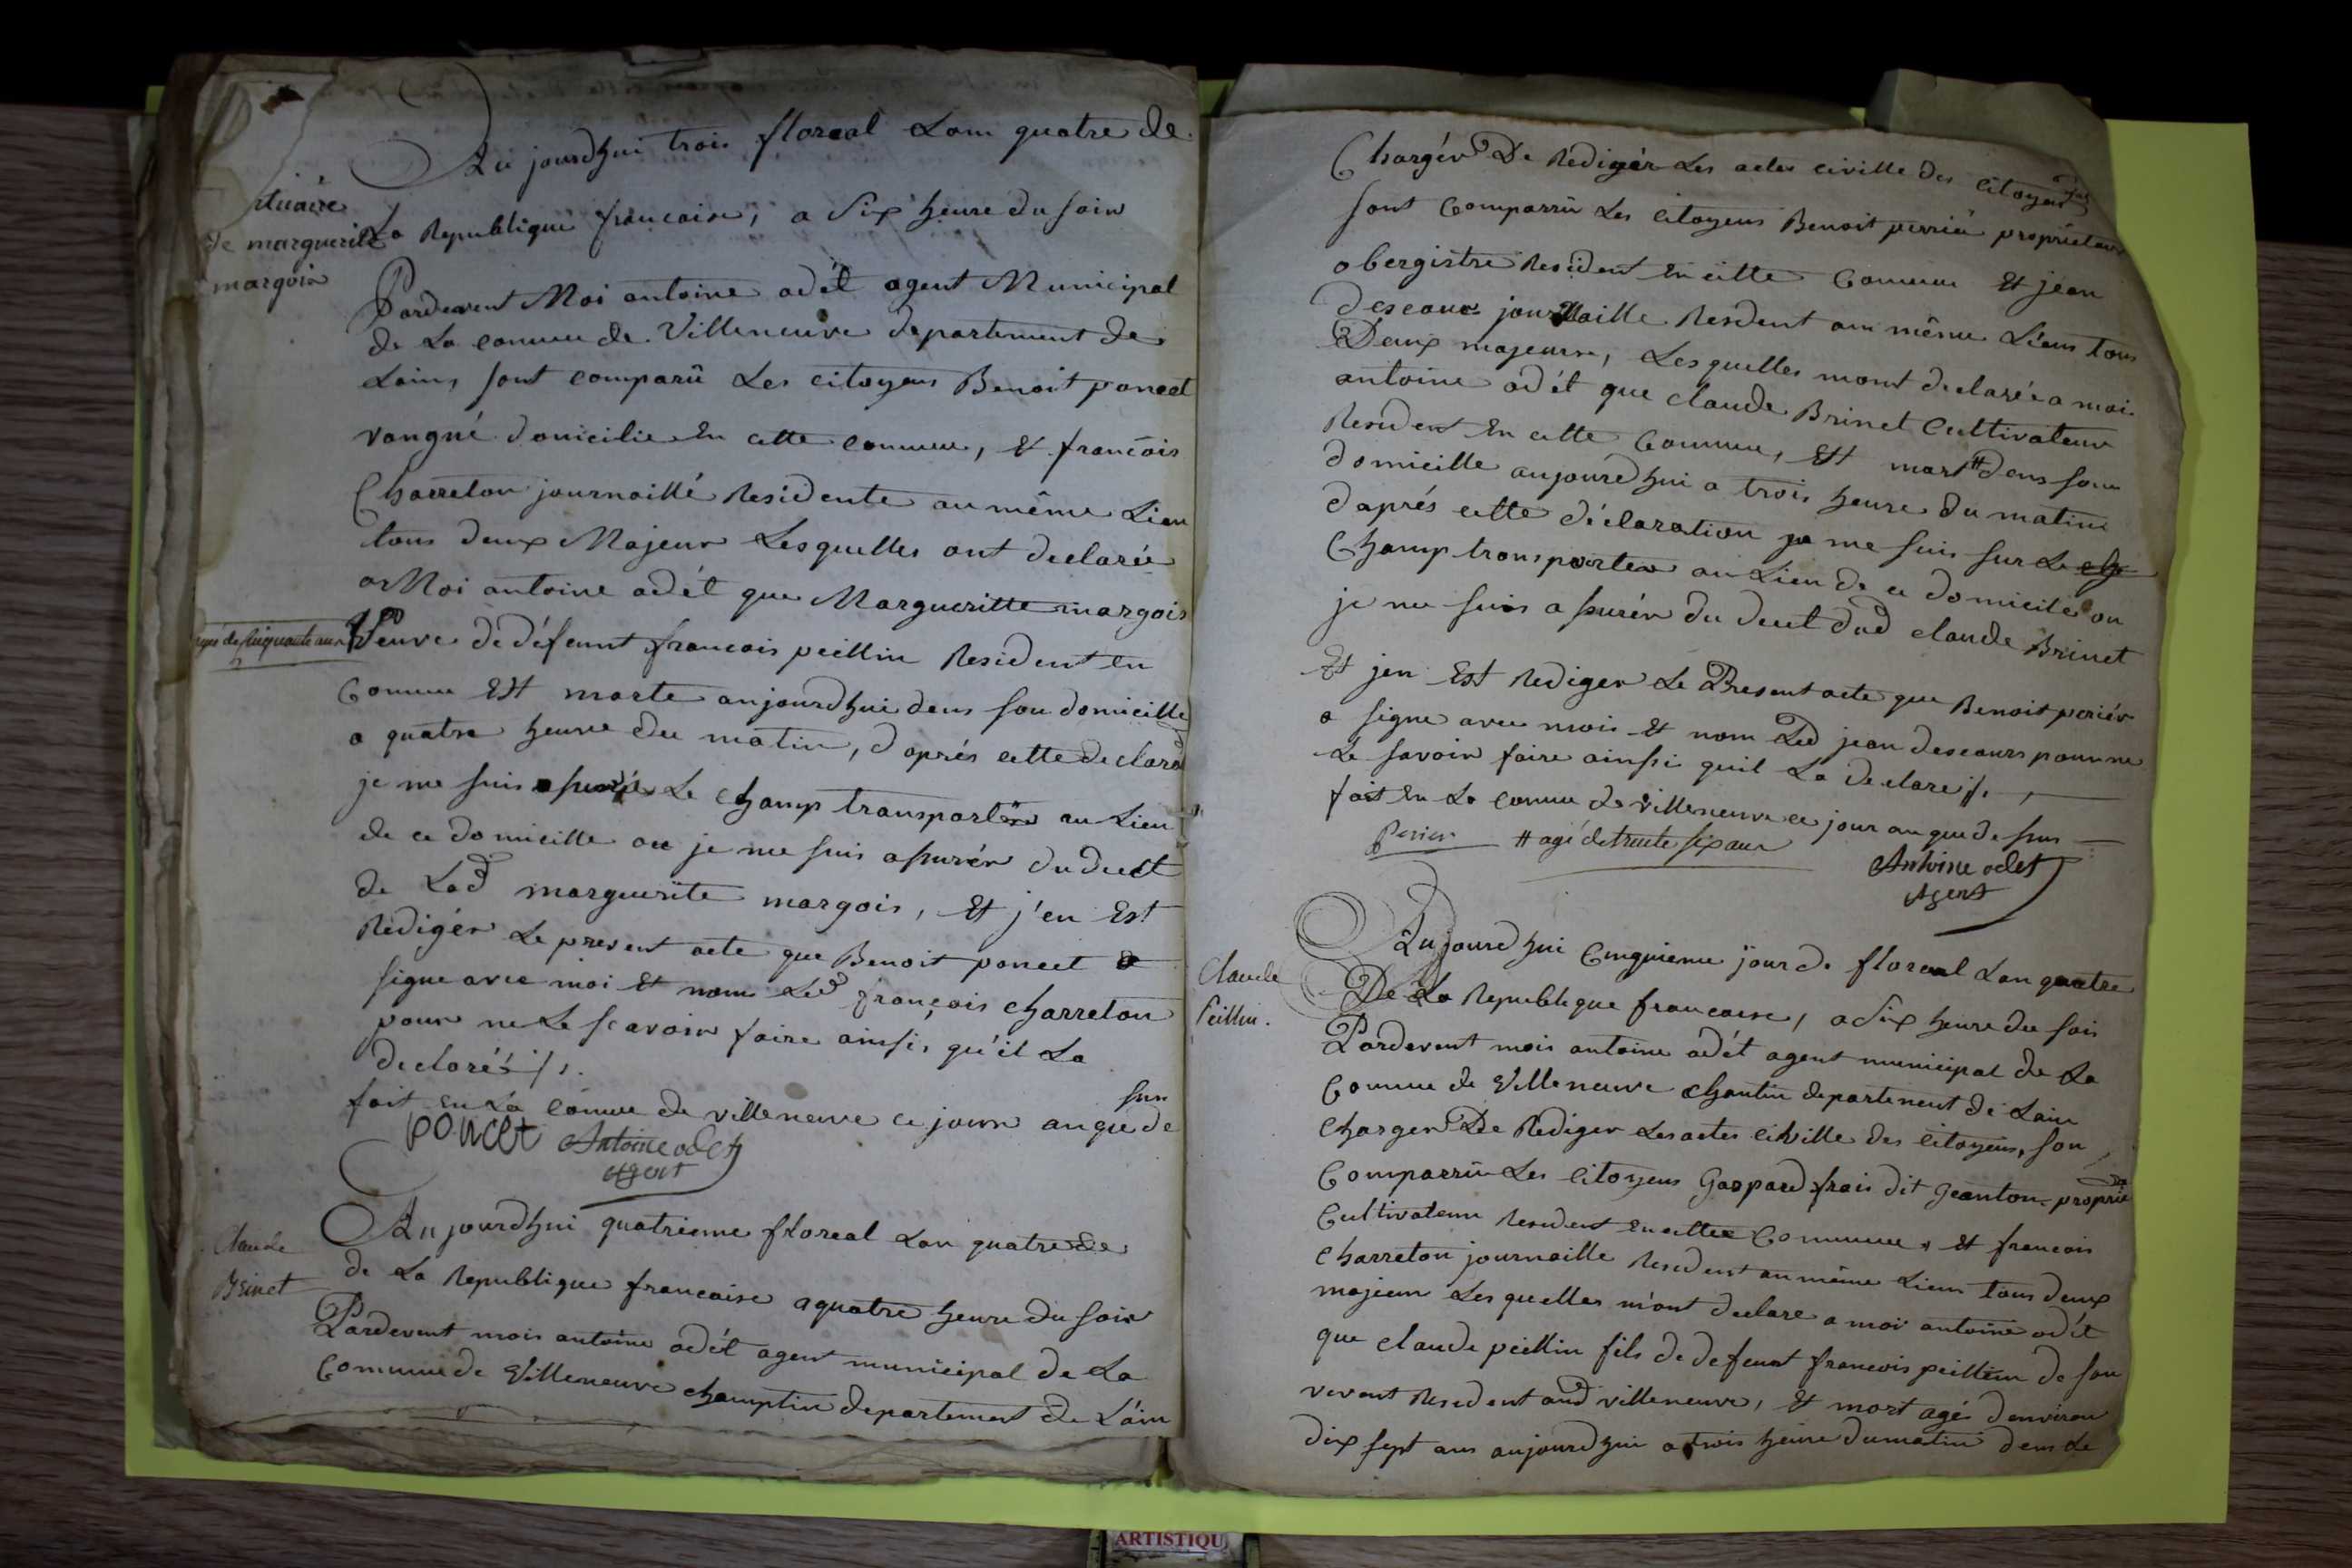 Au jourdhui trois floreal Lam quatre de
rtuaire
de marguerite
margoin
La Republique francaise, a Six heure du soir
Pardevent Moi antoine odét agent Municipal
de La comune de Villeneuve departement de
Lains, sont comparû Les citoyens Benoit poncet
domicilie En cette comune, & francois
Charreton journaillé Residente au même Lieu
tous deux Majeur Lesquelles ont declarée
a Moi antoine odét que Margueritte margois
agé de sinquante ans
Veuve de défeunt francois peillin Resident En
Comune Est morte aujourdhui dens son domicille
a quatre heure du matin, d'aprés cette declara
je me suis Le champ transportér au Lieu
de ce domicille ou je me suis assurér du deest
de Lad marguerite margois, Et j'en Est
Redigér Le present acte que Benoit poncet a
signe avec moi Et nom Led françois charreton
pour ne Le scavoir faire ainsi, qu'il La
declarée ./.
fait En La comune de villeneuve ce jour an que de sus
poncet Antoine odet
agent
Claude
Brinet
Au jourdhui quatrieme floreal Lan quatre de
de La Republique francaise a quatre heure du soir
Pardevent mois antoine odét agent municipal de La
Comune de Villeneuve champtin departement de L'ain
Chargér De Rédigér Les actes civille des citoyens
sont Comparrû Les citoyens Benoit perriér proprietaire
obergistre Resident En citte Comune Et jean
descour journaille Resdent au même Lieus tous
Deux majeure, Lesquelles mont declarée a moi
antoine odét que claude Brinet Cultivateur
Resident En cette Comune, Est mort # dens son
domicille aujourdhui a trois heure du matin
daprés cette déclaration je me suis sur Le ch
Champ transporter au Lieu de ce domicile ou
je me suis assurér du deest dud claude Brinet
Et jen Est Rediger Le Present acte que Benoit periér
a signe avec mois Et nom Led jean descours pour ne
Le savoir faire ainsi quil La declare ./.
fait En La comune de villeneuve ce jour an que de sus
Perier # agé de trente six ans
Antoine odet
Agent
Claude
Peillin.
Aujourdhui Cinquieme jour de floreal Lan quatre
De La Republique francaise, a Six heure du soir
Pardevent mois antoine odét agent municipal de La
Comune de Villeneuve chantin departement de Lain
Charger De Rediger Les actes civille des citoyens, son
Comparrû Les citoyens Gaspard frais dit Jeanton propriet
Cultivateur Resident En cette Commune, & francois
charreton journaille Resident au même Lieux tous deux
majeur Lesquelles m'ont declare a moi antoine odét
que claude peillin fils de defeunt francois peillin de son
vivent Resident aud villeneuve, Est mort agé d'environ
dix sept ans aujourdhui a trois heure du matin dens Le
ARTISTIQU